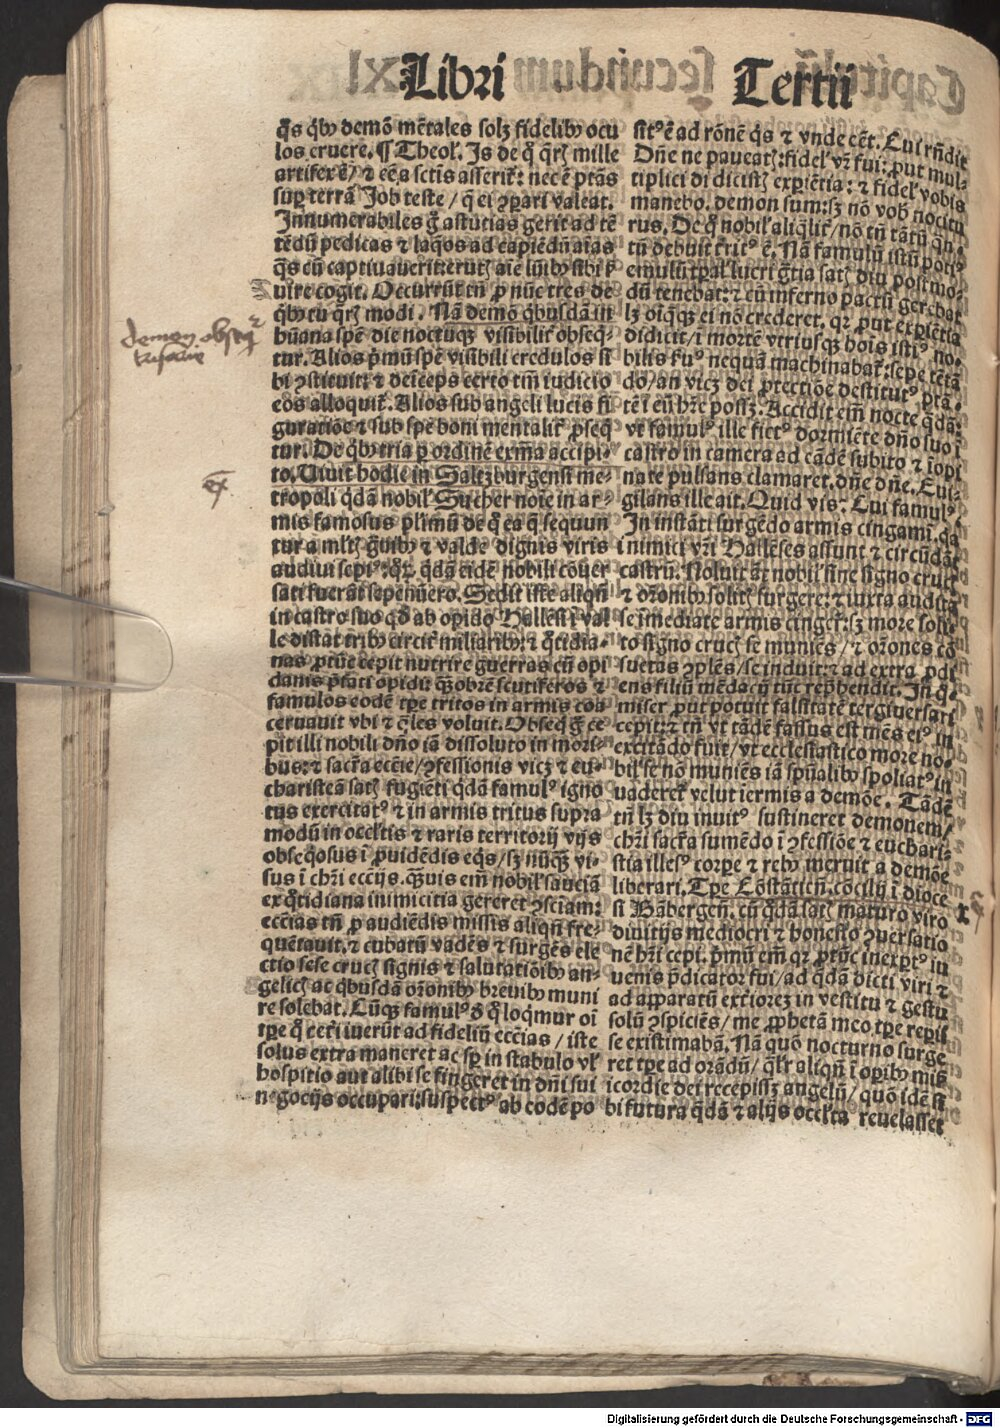 Libri Tertii
q̄s q̄bꝫ demō mētales solꝫ fidelibꝫ ocu
los eruere. ¶ Theol'. Is de q̄ q̄rꝫ mille
artifex ē / ⁊ eē a sctis asserit̄: nec ē ptās
suꝑ terrā Job teste / q̄ ei ꝯpari valeat.
Innumerabiles g̃ astutias gerit ad tē
tēdū pedicas ⁊ laq̄os ad capiēdū aīas
q̄s cū captiuauerit:
uire cogit. Occurrūt tn̄ ꝓ nūc tres de
q̄bꝫ tu q̄rꝫ modi. Nā demō q̄busdā in
hūana spē die noctuqꝫ visibilit̄ obseq̄-
tur. Alios pͥmū spē visibili credulos si
bi ꝯstituit: ⁊ deīceps certo tm̄ iudicio
eos alloquit̄. Alios sub angeli lucis fi
guratiōe ⁊ sub spē boni mentalit̄ ꝓseq̄
tur. De q̄bꝫ tria ꝑ ordinē exm̄a accipi-
to. Uiuit hodie in Saltzburgensi me-
tropoli q̄dā nobil' Sucher noīe in ar-
mis famosus plimū de q̄ ea q̄ sequun
tur a ml'tꝫ g̃uibꝫ ⁊ valde dignis viris
audiui sepiꝰ: q̄dā eidē nobili cōuer
sati fuerāt sepenūero. Sedit iste aliqn̄
in castro suo qd̄ ab opido Hallēsi ī val
le distat tribꝫ circit̄ miliaribꝫ: ⁊ q̄tidia-
nas ꝓtūc cepit nutrire guerras cū opi
danis p̄fati opidi: q̄obrē scutiferos ⁊
famulos eodē tꝑe tritos in armis coa
ceruauit vbi ⁊ q̄les voluit. Obseq̄ g̃ ce
pit illi nobili dño iā dissoluto in mori-
bus: ⁊ sacr̄a ecc̄ie / ꝯfessionis vicꝫ ⁊ eu-
charisteā satꝫ fugiēti q̄dā famulꝰ igno
tus exercitatꝰ ⁊ in armis tritus supra
modū in occl'tis ⁊ raris territorij vijs
obseq̄osus ī ꝓuidēdis eq̄s / sꝫ nūq̄ vi-
sus ī chr̄i eccijs. q̄uis em̄ nobil' sauciā
ex q̄tidiana inimicitia gereret ꝯsciam:
eccias tn̄ ꝓ audiēdis missis aliqn̄ fre-
quētauit. ⁊ cubatū vadēs ⁊ surgēs ele
ctio sese crucꝫ signis ⁊ salutatiōibꝫ an-
gelicꝫ ac q̄busdā orōnibꝫ breuibꝫ muni
re solebat. Cūqꝫ famulꝰ d̄ q̄ loqmur oī
tꝑe q̄ cet̄i iuerūt ad fideliū eccias / iste
solus extra maneret ac sꝑ in stabulo vl'
hospitio aut alibi se fingeret in dn̄i sui
negocijs occupari: suspectꝰ ab eodē po
sitꝰ ē ad rōnē q̄s ⁊ vnde eēt. Cui rn̄dit
Dn̄e ne paueatꝫ: fidel' vr̄ fui: ꝓut mul-
tiplici didicistꝫ exꝑiētia: ⁊ fidel' vobis
manebo. demon sum: sꝫ nō vob̄ nocitu
rus. De q̄ nobil' aliq̄lit̄ / nō tn̄ tātū qn̄-
tū debuit t̄ritꝰ ē. Nā famulū istū potiꝰ
emulū tꝑal' lucri g̃tia satꝫ diu postmo-
dū tenebat: ⁊ cū inferno pactū gerebat
lꝫ oīqꝫ ei nō crederet. qꝛ ꝓut exꝑiētia
didicit / ī mortē vtriusqꝫ hoīs istiꝰ no-
bilis fuꝰ nequā machinabat̄: sepe tētā
do / an vicꝫ dei ꝓtectiōe destitutꝰ ptā-
tē ī eū hr̄e possꝫ. Accidit em̄ nocte q̄dā:
vt famulꝰ ille fictꝰ dormiēte dño suo ī
castro in camera ad eādē subito ⁊ īopi
nate pulsans clamaret. dn̄e dn̄e. Eui-
gilans ille ait. Quid vis: Cui famulꝰ.
In instāti surgēdo armis cingamī. qꝛ
inimici vr̄i Hallēses assunt ⁊ circūdāt
castrū. Noluit āt nobil' sine signo crucꝫ
⁊ orōnibꝫ solitꝫ surgere: ⁊ iuxta audita
se īmediate armis cinger̄: sꝫ more soli-
to signo crucꝫ se muniēs / ⁊ orōnes cō
suetas ꝯplēs / se induit: ⁊ ad extra ꝓdi
ens filiū mēdacij tūc rep̄hendit. In q̄
miser ꝓut potuit falsitatē tergiuersari
cepit: ⁊ tn̄ vt tādē fassus est mēs eiꝰ in
excitādo fuit / vt ecclesiastico more no-
bil' se nō muniēs iā sp̄ualibꝫ spoliatꝰ in
uaderet̄ velut īermis a demōe. Tādē
tn̄ lꝫ diu inuitꝰ sustineret demonem /
chr̄i sacr̄a sumēdo ī ꝯfessiōe ⁊ euchari-
stia illesꝰ corꝑe ⁊ rebꝫ meruit a demōe
liberari. Tꝑe Cōstātieñ. cōcilij ī dioce
si Bābergeñ. cū q̄dā satꝫ maturo viro
diuitijs mediocri ⁊ honesto ꝯuersatio
nē hr̄i cepi. pͥmū em̄ qꝛ ꝓtūc inexꝑtꝰ iu
uenis p̄dicator fui / ad q̄dā dicti viri ⁊
ad apparatū ext̄iorez in vestitu ⁊ gestu
solū ꝯspiciēs / me ꝓphetā meo tꝑe reꝑis
se existimabā. Nā quō nocturno surge
ret tꝑe ad orādū / q̄l'r aliqn̄ ī oꝑibꝫ mis̄
icordie dei recepissꝫ angelū / quō idē si
bi futura q̄dā ⁊ alijs occl'ta reuelasset
demon obseq̄
ex̄
Digitalisierung gefördert durch die Deutsche Forschungsgemeinschaft - DFG